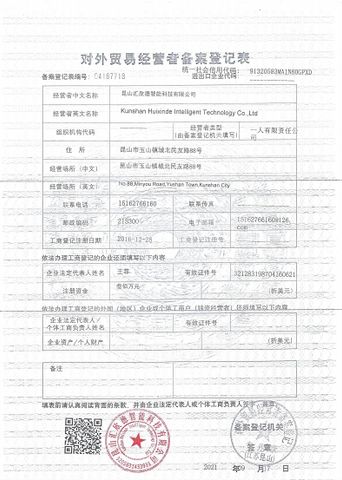 对外贸易经营者备案登记表
统一社会信用代码:
备案登记表编号: 04167713
进出口企业代码:
91320583MA1N80GPXD
经营者中文名称 昆山汇欣德智能科技有限公司
经营者英文名称 Kunshan Huixinde Intelligent Technology Co.,Ltd
组织机构代码 经营者类型 (由备案登记机关填写) 一人有限责任公司
住 所 昆山市玉山镇城北民友路88号
经营场所(中文) 昆山市玉山镇城北民友路88号
经营场所(英文) No 88,Minyou Road,Yushan Town,Kunshan City
联系电话 15162766160 联系传真
邮政编码 215300 电子邮箱 15162766160@126.com
工商登记注册日期 2016-12-28 工商登记注册号
依法办理工商登记的企业还须填写以下内容
企业法定代表人姓名 有效证件号
注册资金 (折美元)
依法办理工商登记的外国(地区)企业或个体工商户(独资经营者)还须填写以下内容
企业法定代表人/个体工商负责人姓名 有效证件号
企业资产/个人财产 (折美元)
备注
填表前请认真阅读背面的条款,并由企业法定代表人或个体工商负责人签字、盖章。
备案登记机关
签 章
2021